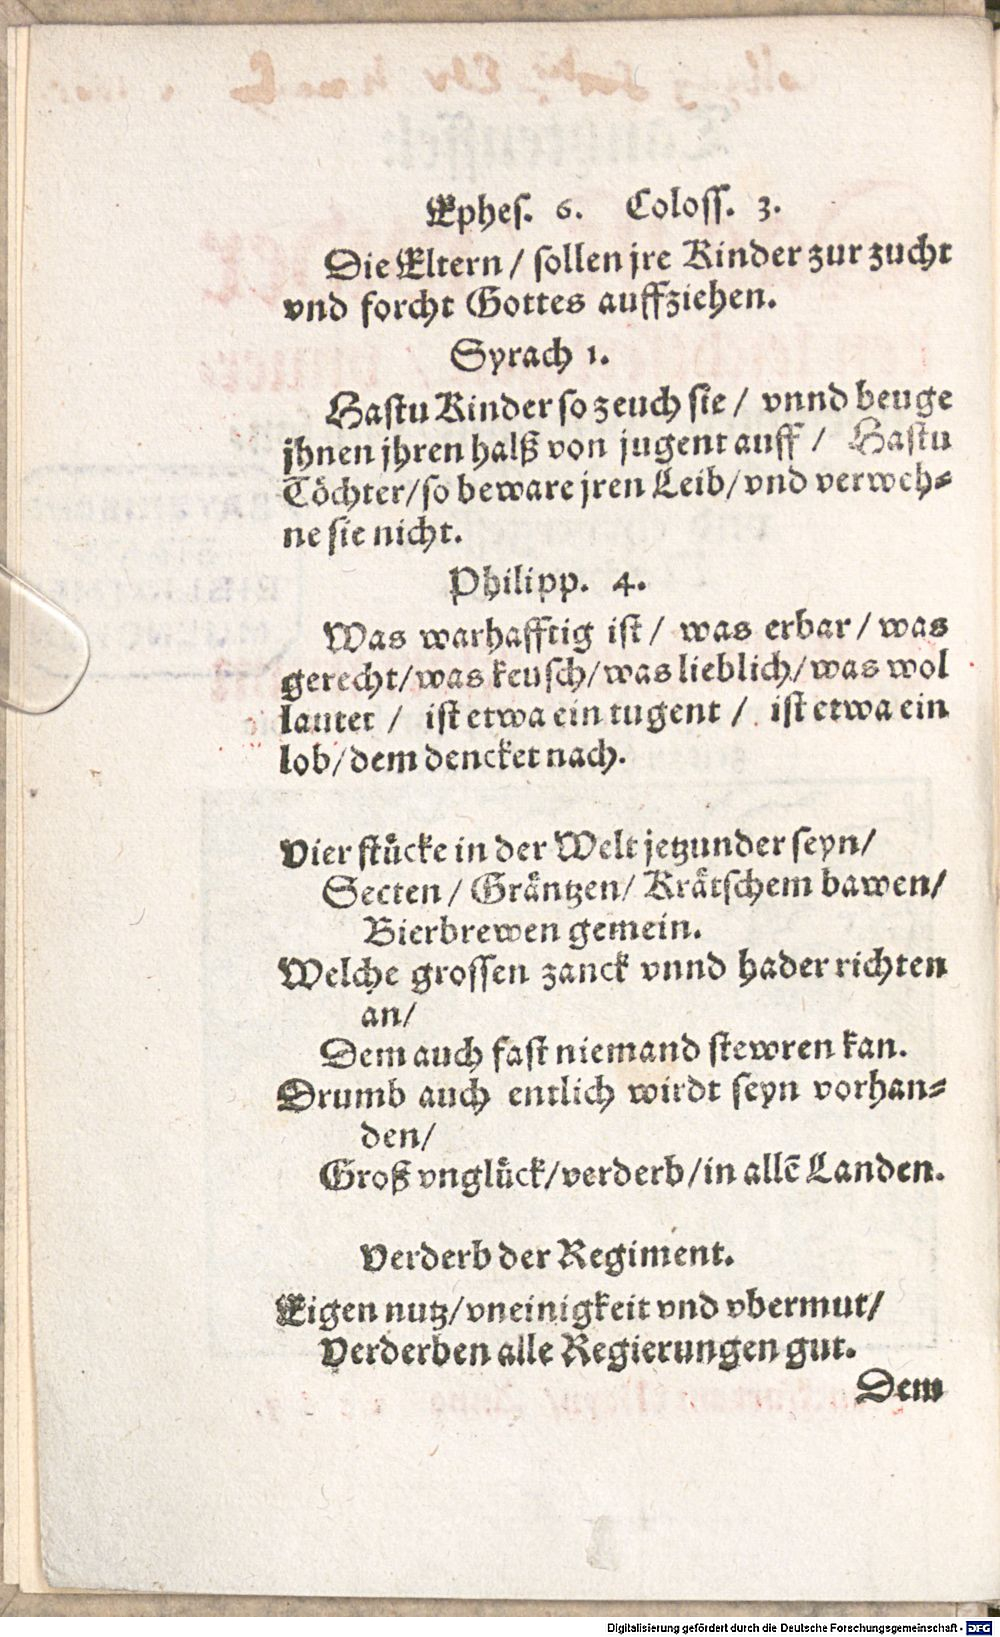 Ephes. 6. Coloss. 3.
Die Eltern / sollen jre Kinder zur zucht
vnd forcht Gottes auffziehen.
Syrach 1.
Hastu Kinder so zeuch sie / vnnd beuge
jhnen jhren halß von jugent auff / Hastu
Töchter/so beware jren Leib/vnd verweh=
ne sie nicht.
Philipp. 4.
Was warhafftig ist / was erbar / was
gerecht/was keusch/was lieblich/was wol
lautet / ist etwa ein tugent / ist etwa ein
lob/dem dencket nach.
Vier stücke in der Welt jetzunder seyn/
Secten / Gräntzen/ Krätschem bawen/
Bierbrewen gemein.
Welche grossen zanck vnnd hader richten
an/
Dem auch fast niemand stewren kan.
Drumb auch entlich wirdt seyn vorhan=
den/
Groß vnglück/verderb/in allē Landen.
Verderb der Regiment.
Eigen nutz/vneinigkeit vnd vbermut/
Verderben alle Regierungen gut.
Dem
Digitalisierung gefördert durch die Deutsche Forschungsgemeinschaft - DFG